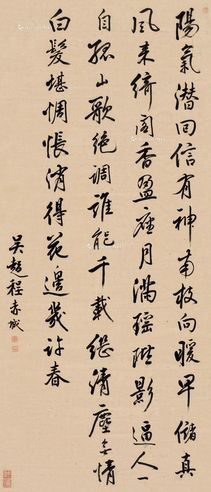 陽氣潛回信有神南枝向暖早儲真
風来綺閣香盈座月滿瑶階影逼人一
自孤山歌絶調誰能千載继清塵無情
白髮堪惆悵消得花邊幾許春
吴趨程赤城